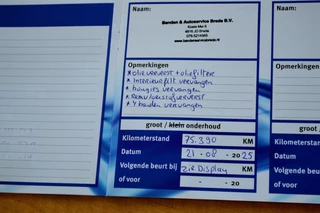 Naam:
Banden & Autoservice Breda B.V.
4815 JD Breda
Naam:
Opmerkingen
* olie ververst + oliefilter
* Interieurfilt vervangen
* bougies vervangen
* Remvloeistof ververst
* 4 banden vervangen
Opmerkingen
groot / klein onderhoud
Kilometerstand 75.390 KM
Datum 21 - 08 - 20 25
Volgende beurt bij zie Display KM
of voor - - 20
groot /
Kilometerstand
Datum
Volgende
of voor